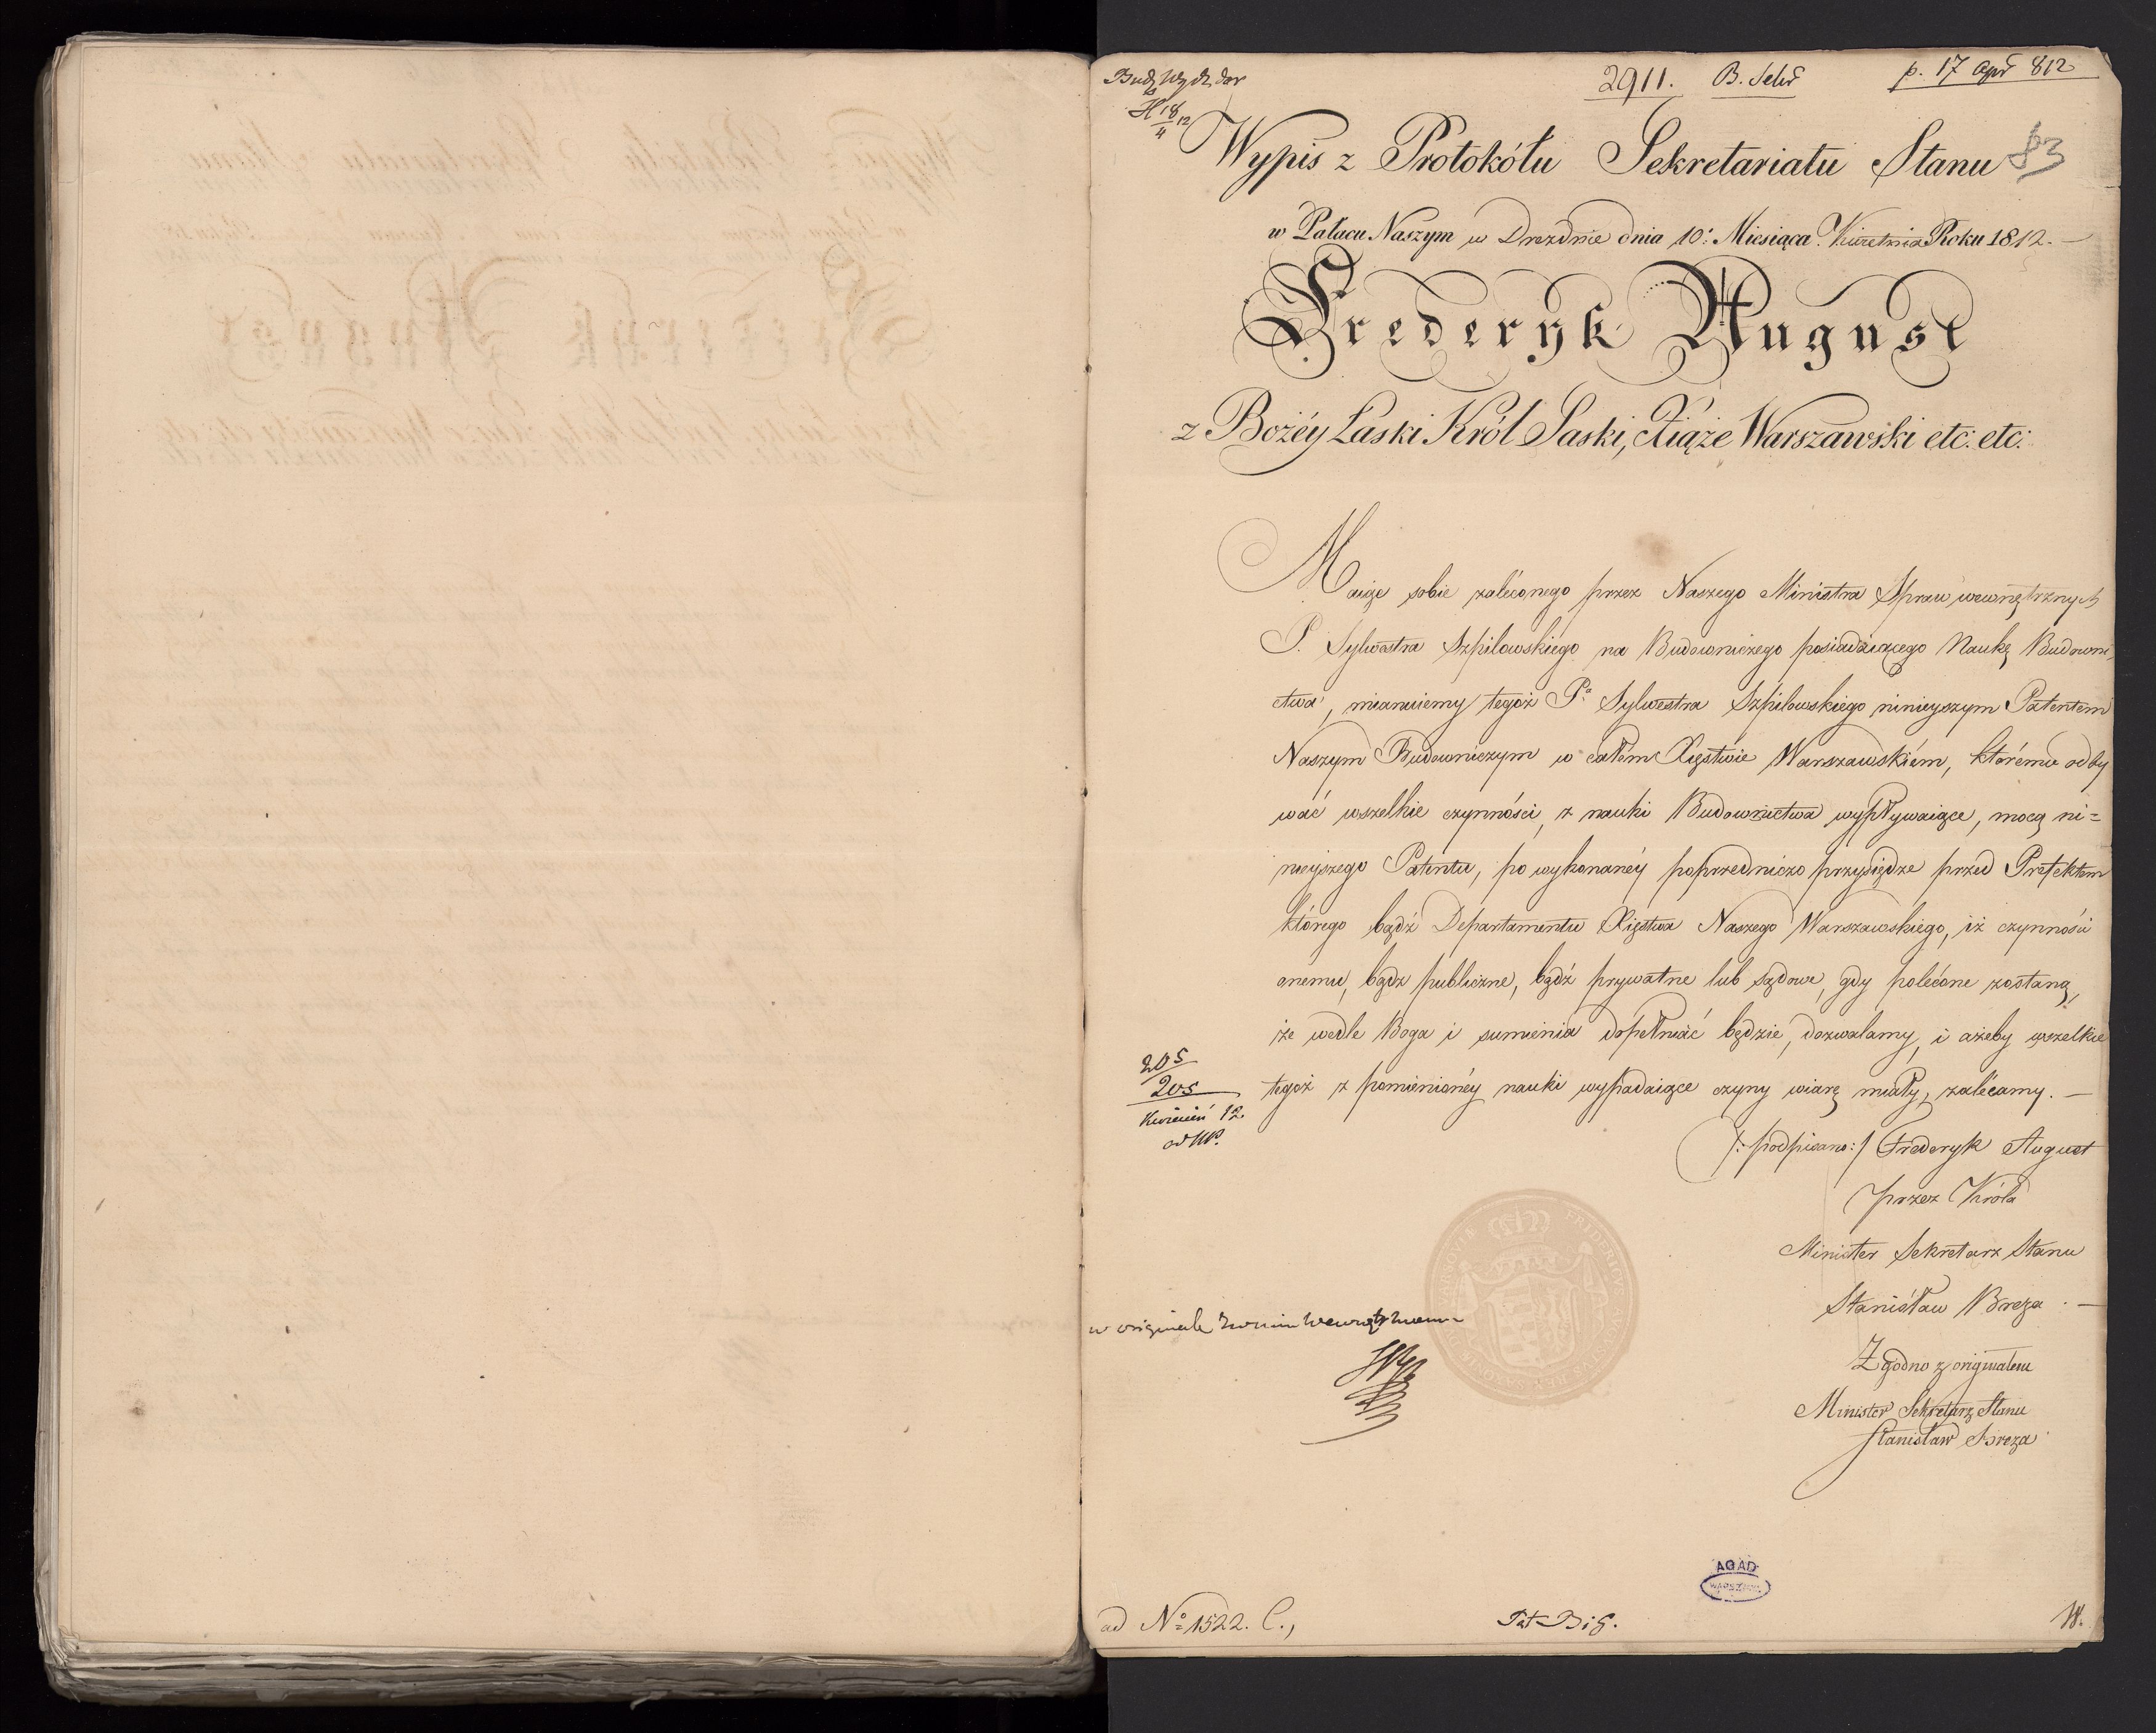 2911. p. 17 Apr 812
83
Wypis z Protokółu Sekretariatu Stanu
w Pałacu Naszym w Dreznie dnia 10: Miesiąca Kwietnia Roku 1812. —
Frederyk August
z Bożéy Łaski Król Saski, Xiąże Warszawski etc: etc:
Maiąc sobie zaléconego przez Naszego Ministra Spraw wewnętrznych
P. Sylwestra Szpilowskiego na Budowniczego posiadaiącego Naukę Budowni-
ctwa, mianuiemy tegoż Pa Sylwestra Szpilowskiego ninieyszym Patentem
Naszym Budowniczym w całém Xięstwie Warszawskiém, którému odby
wać wszelkie czynnósci, z nauki Budownictwa wypływaiące, mocą ni=
nieyszego Patentu, po wykonanéy poprzedniczo przysiędze przed Prefektem
którego bądź Departamentu Xięstwa Naszego Warszawskiego, iż czynnosci
onemu, bądz publiczne, bądź prywatne lub sądowe, gdy polécone zostaną,
że wedle Boga i sumienia dopełniać będzie, dozwalamy, i ażeby wszelkie
tegoż z pomienionéy nauki wypadaiące czyny wiarę miały, zalécamy. —
205
205
Kwiecień 12.
/: podpisano :/ Frederyk August
przez Króla
Minister Sekretarz Stanu
Stanisław Breza. —
w originale
Zgodno z originałem
Minister Sekretarz Stanu
Stanisław Breza
AGAD
WARSZAWA
ad No 1522. C.,